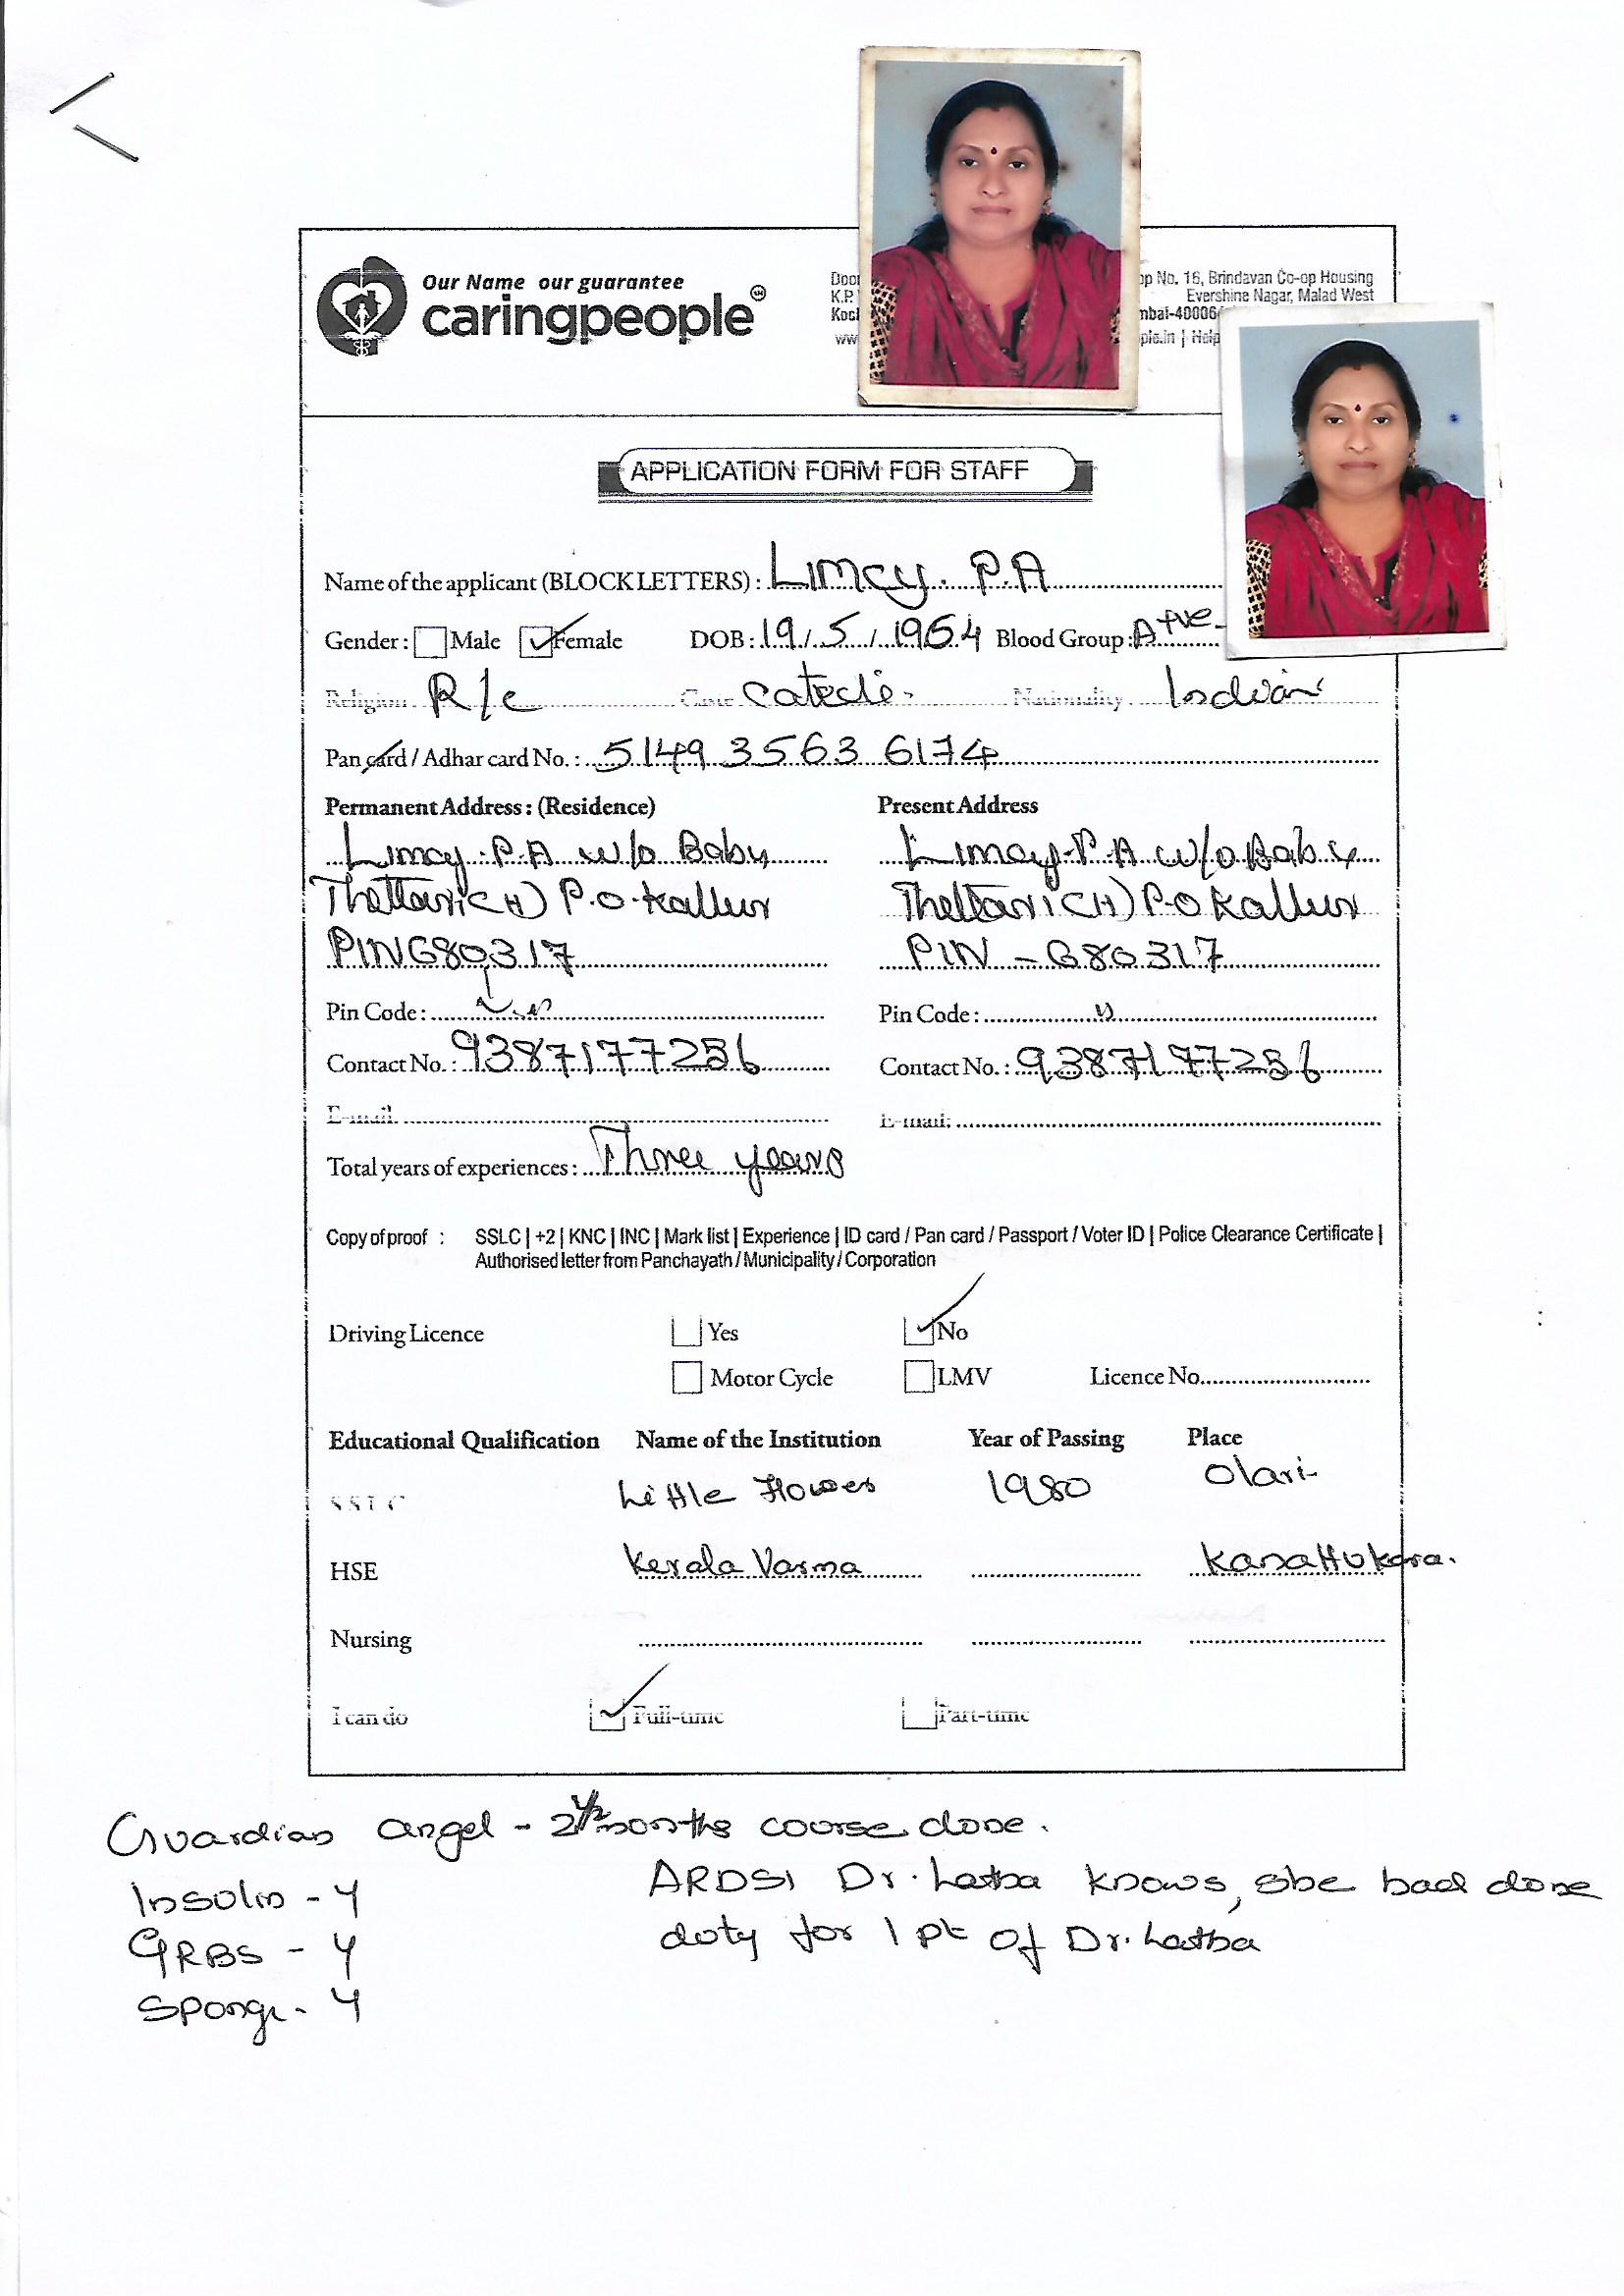 Our Name our guarantee
caringpeople
op No. 16, Brindavan Co-op Housing
K.P.
Evershine Nagar, Malad West
APPLICATION FORM FOR STAFF
Name of the applicant (BLOCK LETTERS) : Limcy. P.A
Gender : Male Female DOB : 19/5/1964 Blood Group : A +ve
Religion R/c Caste Nationality Indian
Pan card / Adhar card No. : 5149 3563 6174
Permanent Address : (Residence) Present Address
Limcy. P.A w/o Baby Limcy. P.A w/o Baby
Thettavi (H) P.O. Kallur Thettavi (H) P.O Kallur
PIN 680317 PIN - 680317
Pin Code : Pin Code : "
Contact No. : 9387177256 Contact No. : 9387177256
E-mail: E-mail:
Total years of experiences : Three years
Copy of proof : SSLC | +2 | KNC | INC | Mark list | Experience | ID card / Pan card / Passport / Voter ID | Police Clearance Certificate |
Authorised letter from Panchayath / Municipality / Corporation
Driving Licence Yes No
Motor Cycle LMV Licence No.
Educational Qualification Name of the Institution Year of Passing Place
SSLC Little Flower 1980 Olari
HSE Kerala Varma Kanattukara.
Nursing
I can do Full-time Part-time
Guardian angel - 2 1/2 months course done.
Insulin - Y
ARDSI Dr. Latha knows, she had done
GRBS - Y
duty for 1 pt of Dr. Latha
Sponge - Y